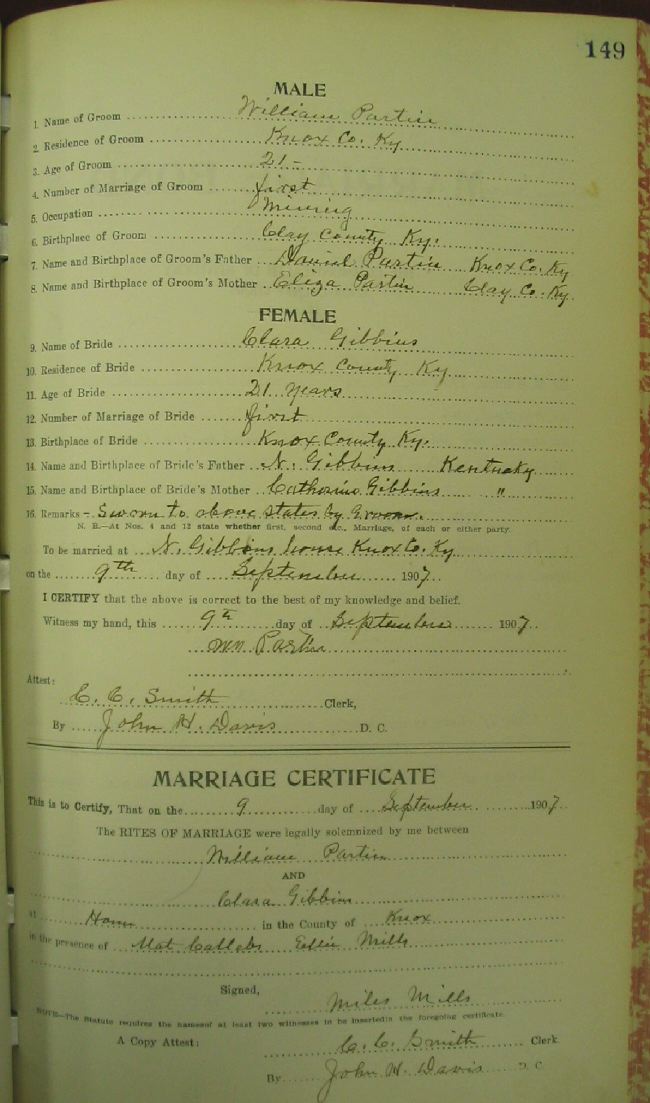 149
MALE
1. Name of Groom William Partin
2. Residence of Groom Knox Co. Ky
3. Age of Groom 21-
4. Number of Marriage of Groom first
5. Occupation Mining
6. Birthplace of Groom Clay County Ky.
7. Name and Birthplace of Groom's Father Daniel Partin Knox Co. Ky
8. Name and Birthplace of Groom's Mother Eliza Partin Clay Co. Ky.
FEMALE
9. Name of Bride Clara Gibbins
10. Residence of Bride Knox County Ky
11. Age of Bride 21 years
12. Number of Marriage of Bride first
13. Birthplace of Bride Knox County Ky.
14. Name and Birthplace of Bride's Father N. Gibbins Kentucky
15. Name and Birthplace of Bride's Mother Catharine Gibbins "
16. Remarks - Sworn to above states by Groom.
N. B.—At Nos. 4 and 12 state whether first, second etc., Marriage, of each or either party.
To be married at N. Gibbins house Knox Co. Ky
on the 9th day of September 1907
I CERTIFY that the above is correct to the best of my knowledge and belief.
Witness my hand, this 9th day of September 1907
Wm Partin
Attest:
C. C. Smith Clerk,
By John H. Davis D. C.
MARRIAGE CERTIFICATE
This is to Certify, That on the 9 day of September 1907
The RITES OF MARRIAGE were legally solemnized by me between
William Partin
AND
Clara Gibbins
at Home in the County of Knox
in the presence of Mat Callebs Effie Mills
Signed,
Miles Mills
NOTE—The Statute requires the namesof at least two witnesses to be insertedin the foregoing certificate.
A Copy Attest: C. C. Smith Clerk
By John H. Davis D. C